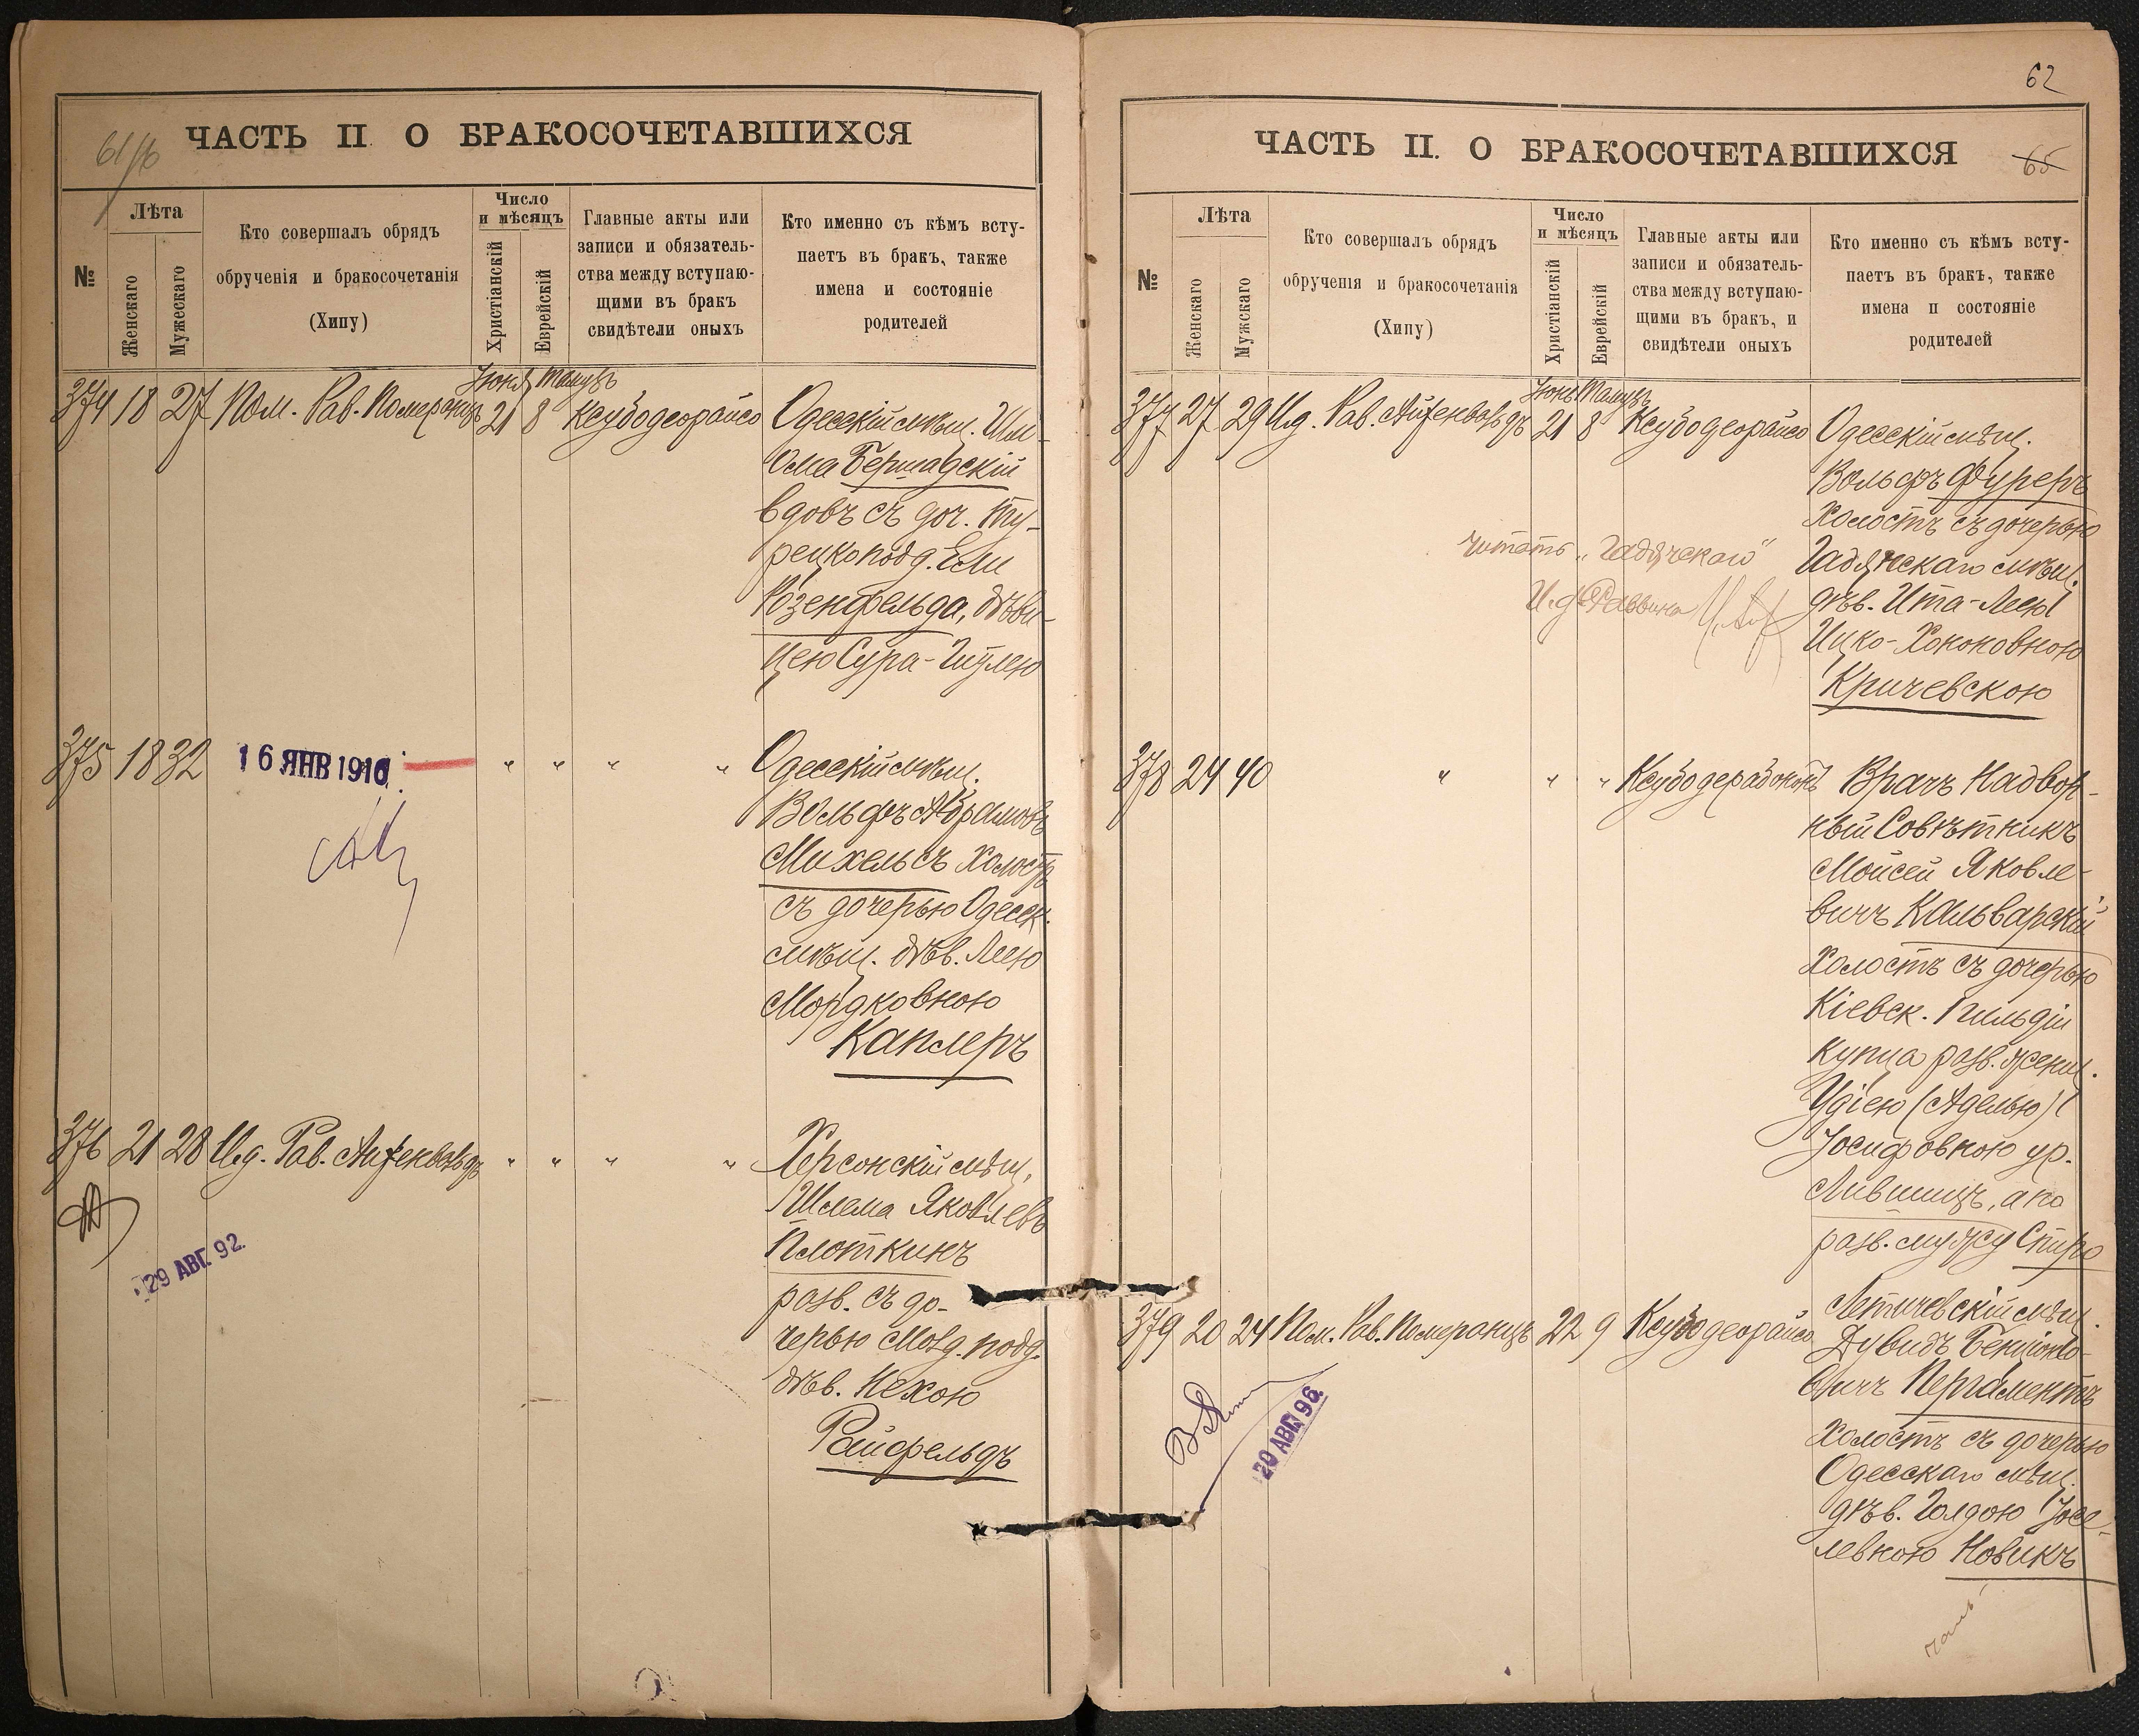 61/б
ЧАСТЬ II О БРАКОСОЧЕТАВШИХСЯ
№
Лѣта
Женскаго
Мужескаго
Кто совершалъ обрядъ
обрученія и бракосочетанія
(Хипу)
Число
и мѣсяцъ
Христіанскій
Еврейскій
Главные акты или
записи и обязатель-
ства между вступаю-
щими въ бракъ
свидѣтели оныхъ
Кто именно съ кѣмъ всту-
паетъ въ бракъ, также
имена и состояніе
родителей
Іюня Тамузъ
374 18 27 Пом. Рав. Померанцъ 21 8 Ксубодеорайсо Одесскій мѣщ. Шл-
ома Бершадскій
вдовъ съ доч. Ту-
рецкопод. Ели
Розенфельда, дѣви-
цею Сура-Гитлею
375 18 32 16 ЯНВ 1910 " " " " Одесскій мѣщ.
Вольфъ Абрамовъ
Михельсъ холостъ
съ дочерью Одесск.
мѣщ. дѣв. Леею
Мордковною
Каплеръ
376 21 28 И.д. Рав. Айзенвольдъ " " " " Херсонскій мѣщ.
Шлема Яковлевъ
Плоткинъ
разв. съ до-
черью Молд. подд.
дѣв. Нехою
Райфельдъ
29 АВГ. 92.
62
ЧАСТЬ II. О БРАКОСОЧЕТАВШИХСЯ
65
№
Лѣта
Женскаго
Мужскаго
Кто совершалъ обрядъ
обрученія и бракосочетанія
(Хипу)
Число
и мѣсяцъ
Христіанскій
Еврейскій
Главные акты или
записи и обязатель-
ства между вступаю-
щими въ бракъ, и
свидѣтели оныхъ
Кто именно съ кѣмъ всту-
паетъ въ бракъ, также
имена п состояніе
родителей
Іюнь Тамузъ
377 27 29 И.д. Рав. Айзенвольдъ 21 8 Ксубодеорайсо Одесскій мѣщ.
Вольфъ Фуреръ
холостъ съ дочерью
Гадячскаго мѣщ.
дѣв. Ита-Леею
Ицко-Хононовною
Кричевскою
читать "Гадячскаго"
И.д. Раввина
378 24 40 " " " Ксубодерабононъ Врачъ Надвор-
ный Совѣтникъ
Мойсей Яковле-
вичъ Кальварскій
холостъ съ дочерью
Кіевск. I гильдіи
купца разв. женщ.
Удіею (Аделью)
Іосифовною ур.
Лившицъ, а по
разв. мужу Спиро
379 20 24 Пом. Рав. Померанцъ 22 9 Ксубодеорайсо Летичевскій мѣщ.
Дувидъ Бенціоно-
вичъ Пергаментъ
холостъ съ дочерью
Одесскаго мѣщ.
дѣв. Голдою Іосе-
левною Новикъ
20 АВГ. 96.